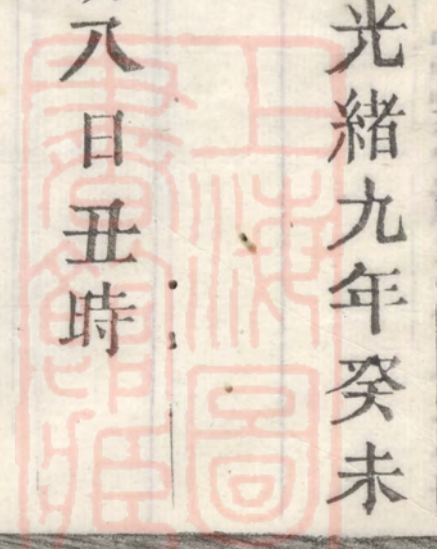 光緒九年癸未
八日丑時
上海圖
書館藏